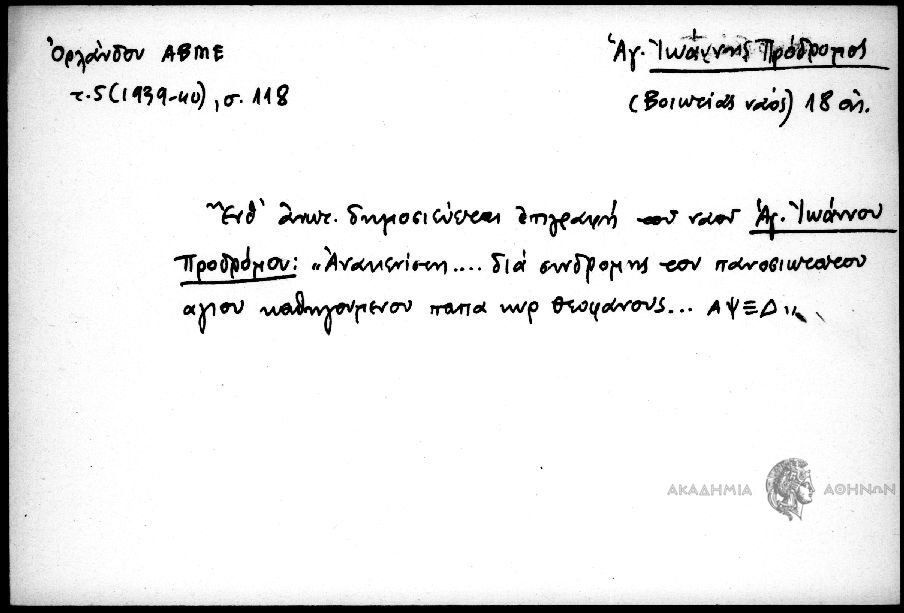 Ὀρλάνδου ΑΒΜΕ
τ. 5 (1939-40), σ. 118
Ἁγ. Ἰωάννης Πρόδρομος
(Βοιωτίας ναός) 18 αἰ.
Ἔνθ' ἀνωτ. δημοσιεύεται ἐπιγραφή τοῦ ναοῦ Ἁγ. Ἰωάννου
Προδρόμου: "Ἀνακενίση.... διά συνδρομης του πανοσιωτατου
αγιου καθηγούμενου παπα κυρ θεοφανους... ΑΨΞΔ"
ΑΚΑΔΗΜΙΑ ΑΘΗΝΩΝ